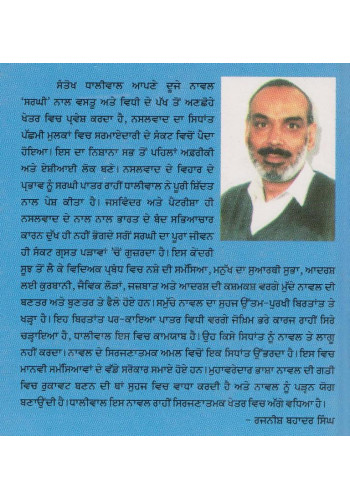 ਸੰਤੋਖ ਧਾਲੀਵਾਲ ਆਪਣੇ ਦੂਜੇ ਨਾਵਲ
'ਸਰਘੀ' ਨਾਲ ਵਸਤੂ ਅਤੇ ਵਿਧੀ ਦੇ ਪੱਖ ਤੋਂ ਅਣਛੋਹੇ
ਖੇਤਰ ਵਿਚ ਪ੍ਰਵੇਸ਼ ਕਰਦਾ ਹੈ, ਨਸਲਵਾਦ ਦਾ ਸਿਧਾਂਤ
ਪੱਛਮੀ ਮੁਲਕਾਂ ਵਿਚ ਸਰਮਾਏਦਾਰੀ ਦੇ ਸੰਕਟ ਵਿਚੋਂ ਪੈਦਾ
ਹੋਇਆ। ਇਸ ਦਾ ਨਿਸ਼ਾਨਾ ਸਭ ਤੋਂ ਪਹਿਲਾਂ ਅਫ਼ਰੀਕੀ
ਅਤੇ ਏਸ਼ੀਆਈ ਲੋਕ ਬਣੇ। ਨਸਲਵਾਦ ਦੇ ਵਿਹਾਰ ਦੇ
ਪ੍ਰਭਾਵ ਨੂੰ ਸਰਘੀ ਪਾਤਰ ਰਾਹੀਂ ਧਾਲੀਵਾਲ ਨੇ ਪੂਰੀ ਸ਼ਿੱਦਤ
ਨਾਲ ਪੇਸ਼ ਕੀਤਾ ਹੈ। ਜਸਵਿੰਦਰ ਅਤੇ ਪੈਟਰੀਸ਼ਾ ਹੀ
ਨਸਲਵਾਦ ਦੇ ਨਾਲ ਨਾਲ ਭਾਰਤ ਦੇ ਬੰਦ ਸਭਿਆਚਾਰ
ਕਾਰਨ ਦੁੱਖ ਹੀ ਨਹੀਂ ਭੋਗਦੇ ਸਗੋਂ ਸਰਘੀ ਦਾ ਪੂਰਾ ਜੀਵਨ
ਹੀ ਸੰਕਟ ਗ੍ਰਸਤ ਪੜਾਵਾਂ 'ਚੋਂ ਗੁਜ਼ਰਦਾ ਹੈ। ਇਸ ਕੇਂਦਰੀ
ਸੂਝ ਤੋਂ ਲੈ ਕੇ ਵਿਦਿਅਕ ਪ੍ਰਬੰਧ ਵਿਚ ਨਸ਼ੇ ਦੀ ਸਮੱਸਿਆ, ਮਨੁੱਖ ਦਾ ਸੁਆਰਥੀ ਸੁਭਾ, ਆਦਰਸ਼
ਲਈ ਕੁਰਬਾਨੀ, ਜੈਵਿਕ ਲੋੜਾਂ, ਜਜ਼ਬਾਤ ਅਤੇ ਆਦਰਸ਼ ਦੀ ਕਸ਼ਮਕਸ਼ ਵਰਗੇ ਮੁੱਦੇ ਨਾਵਲ ਦੀ
ਬਣਤਰ ਅਤੇ ਬੁਣਤਰ ਤੇ ਫੈਲੇ ਹੋਏ ਹਨ। ਸਮੁੱਚੇ ਨਾਵਲ ਦਾ ਸੁਹਜ ਉੱਤਮ-ਪੁਰਖੀ ਬਿਰਤਾਂਤ ਤੇ
ਖੜ੍ਹਾ ਹੈ। ਇਹ ਬਿਰਤਾਂਤ ਪਰ-ਕਾਇਆ ਪਾਤਰ ਵਿਧੀ ਵਰਗੇ ਜੋਖ਼ਿਮ ਭਰੇ ਕਾਰਜ ਰਾਹੀਂ ਸਿਰੇ
ਚੜ੍ਹਾਇਆ ਹੈ, ਧਾਲੀਵਾਲ ਇਸ ਵਿਚ ਕਾਮਯਾਬ ਹੈ। ਉਹ ਕਿਸੇ ਸਿਧਾਂਤ ਨੂੰ ਨਾਵਲ ਤੇ ਲਾਗੂ
ਨਹੀਂ ਕਰਦਾ। ਨਾਵਲ ਦੇ ਸਿਰਜਣਾਤਮਕ ਅਮਲ ਵਿਚੋਂ ਇਕ ਸਿਧਾਂਤ ਉੱਭਰਦਾ ਹੈ। ਇਸ ਵਿਚ
ਮਾਨਵੀ ਸਮੱਸਿਆਵਾਂ ਦੇ ਵੱਡੇ ਸਰੋਕਾਰ ਸਮਾਏ ਹੋਏ ਹਨ। ਮੁਹਾਵਰੇਦਾਰ ਭਾਸ਼ਾ ਨਾਵਲ ਦੀ ਗਤੀ
ਵਿਚ ਰੁਕਾਵਟ ਬਣਨ ਦੀ ਥਾਂ ਸੁਹਜ ਵਿਚ ਵਾਧਾ ਕਰਦੀ ਹੈ ਅਤੇ ਨਾਵਲ ਨੂੰ ਪੜ੍ਹਨ ਯੋਗ
ਬਣਾਉਂਦੀ ਹੈ। ਧਾਲੀਵਾਲ ਇਸ ਨਾਵਲ ਰਾਹੀਂ ਸਿਰਜਣਾਤਮਕ ਖੇਤਰ ਵਿਚ ਅੱਗੇ ਵਧਿਆ ਹੈ।
- ਰਜਨੀਸ਼ ਬਹਾਦਰ ਸਿੰਘ